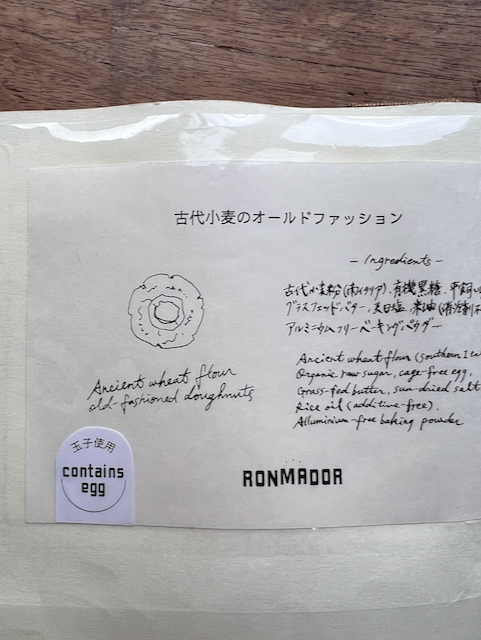 古代小麦のオールドファッション
- Ingredients -
古代小麦粉(南イタリア)、有機黒糖、平飼い
グラスフェッドバター、天日塩、米油
アルミニウムフリーベーキングパウダー
Ancient wheat flour (Southern Ita
Organic raw sugar, cage-free egg,
Grass-fed butter, sun-dried salt
Rice oil (additive-free).
Alluminium-free baking powder
Ancient wheat flour
old-fashioned doughnuts
玉子使用
contains
egg
RONMADOR